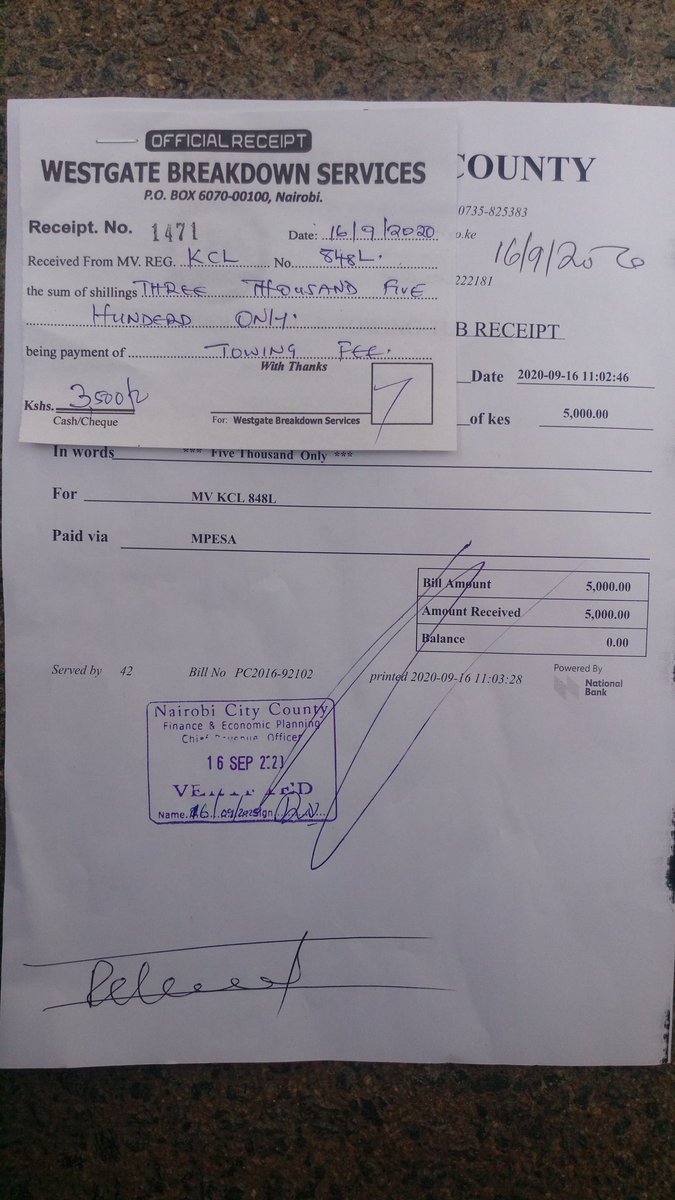 OFFICIAL RECEIPT
WESTGATE BREAKDOWN SERVICES
P.O. BOX 6070-00100, Nairobi.
Receipt. No. 1471
Date: 16/9/2020
Received From MV. REG. KCL No. 848L.
the sum of shillings THREE THOUSAND FIVE
HUNDERD ONLY.
being payment of TOWING FEE.
With Thanks
Kshs. 3,500/=
Cash/Cheque
For: Westgate Breakdown Services
COUNTY
0735-825383
o.ke
16/9/2020
222181
B RECEIPT
Date 2020-09-16 11:02:46
of kes 5,000.00
In words *** Five Thousand Only ***
For MV KCL 848L
Paid via MPESA
Bill Amount 5,000.00
Amount Received 5,000.00
Balance 0.00
Served by 42 Bill No PC2016-92102 printed 2020-09-16 11:03:28
Powered By
National
Bank
Nairobi City County
Finance & Economic Planning
Chief Officer
16 SEP
Name. 16/09/2020 Sign